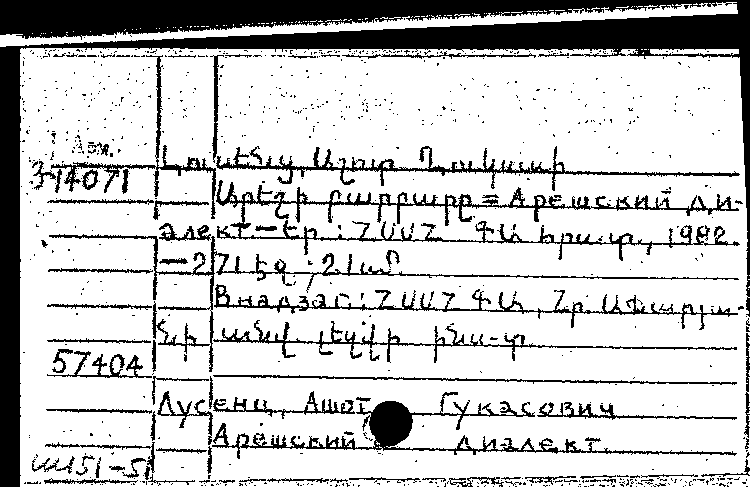 Арм.
Լուսենց, Աշոտ Ղուկասի
3-14071
Արեշի բարբառը = Арешский ди-
алект. — Եր.: ՀՍՍՀ ԳԱ հրատ., 1982.
— 271 էջ ; 21 սմ.
Внадзаг.: ՀՍՍՀ ԳԱ, Հր. Աճառյա-
նի անվ. լեզվի ինս-տ.
57404
Лусенц, Ашот Гукасович
Арешский диалект.